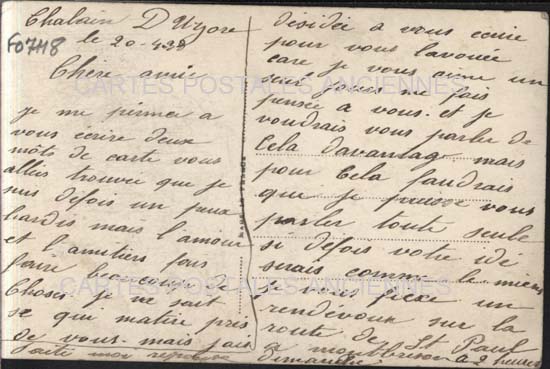 Chalain D'Uzore
le 20-4-32
FO7H8
Chère amie
Je me permer a
vous écrire deux
mots de carte vous
alles trouvée que je
suis défois un peux
hardis mais l'amour
et l'amitiers fais
faire beaucoup de
Choses je ne sait
se qui m'atire pres
de vous. mais fais
faite moi reponse
MADE IN FRANCE
désidée a vous écrire
pour vous l'avouée
care je vous aime un
seul jours ne fais
pensée a vous. et je
voudrais vous parler de
Cela davantag mais
pour Cela faudrais
que je puisse vous
parler toute seule
si défois votre idé
serais comme la mienne
je vous fixe un
rendevoux sur la
route de St Paul
a montbrison a 2 heures
dimanche
CARTES POSTALES ANCIENNES
CARTES POSTALES ANCIENNES